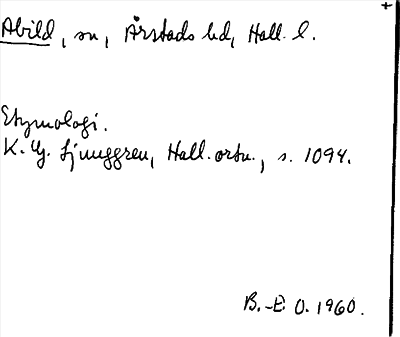 +
Abild, sn, Årstads hd, Hall. l.
Etymologi.
K. G. Ljunggren, Hall. ortn., s. 1094.
B.-E O. 1960.